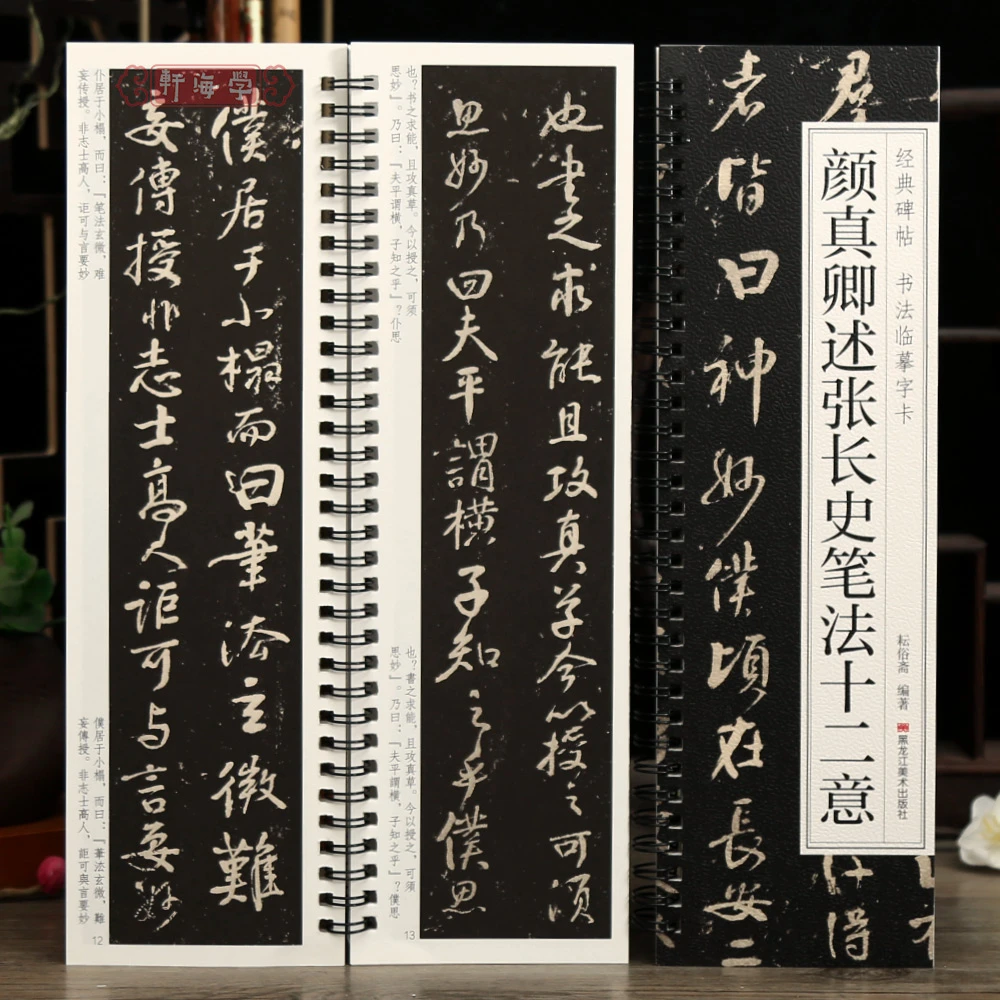 學海軒
僕居于小榻而曰筆法玄微難
妄傳授非志士高人詎可与言要妙
仆居于小榻，而曰：「笔法玄微，难
妄传授。非志士高人，讵可与言要妙
僕居于小榻，而曰：「筆法玄微，難
妄傳授。非志士高人，詎可與言要妙
12
也書之求能且攻真草今以授之可須
思妙乃曰夫平謂横子知之乎僕思
也？书之求能，且攻真草。今以授之，可须
思妙」。乃曰：「夫平谓横，子知之乎」？仆思
也？書之求能，且攻真草。今以授之，可須
思妙」。乃曰：「夫平謂橫，子知之乎」？僕思
13
群
得
者皆曰神妙僕頃在長安二
经典碑帖 书法临摹字卡
颜真卿述张长史笔法十二意
耘俗斋 编著
黑龙江美术出版社